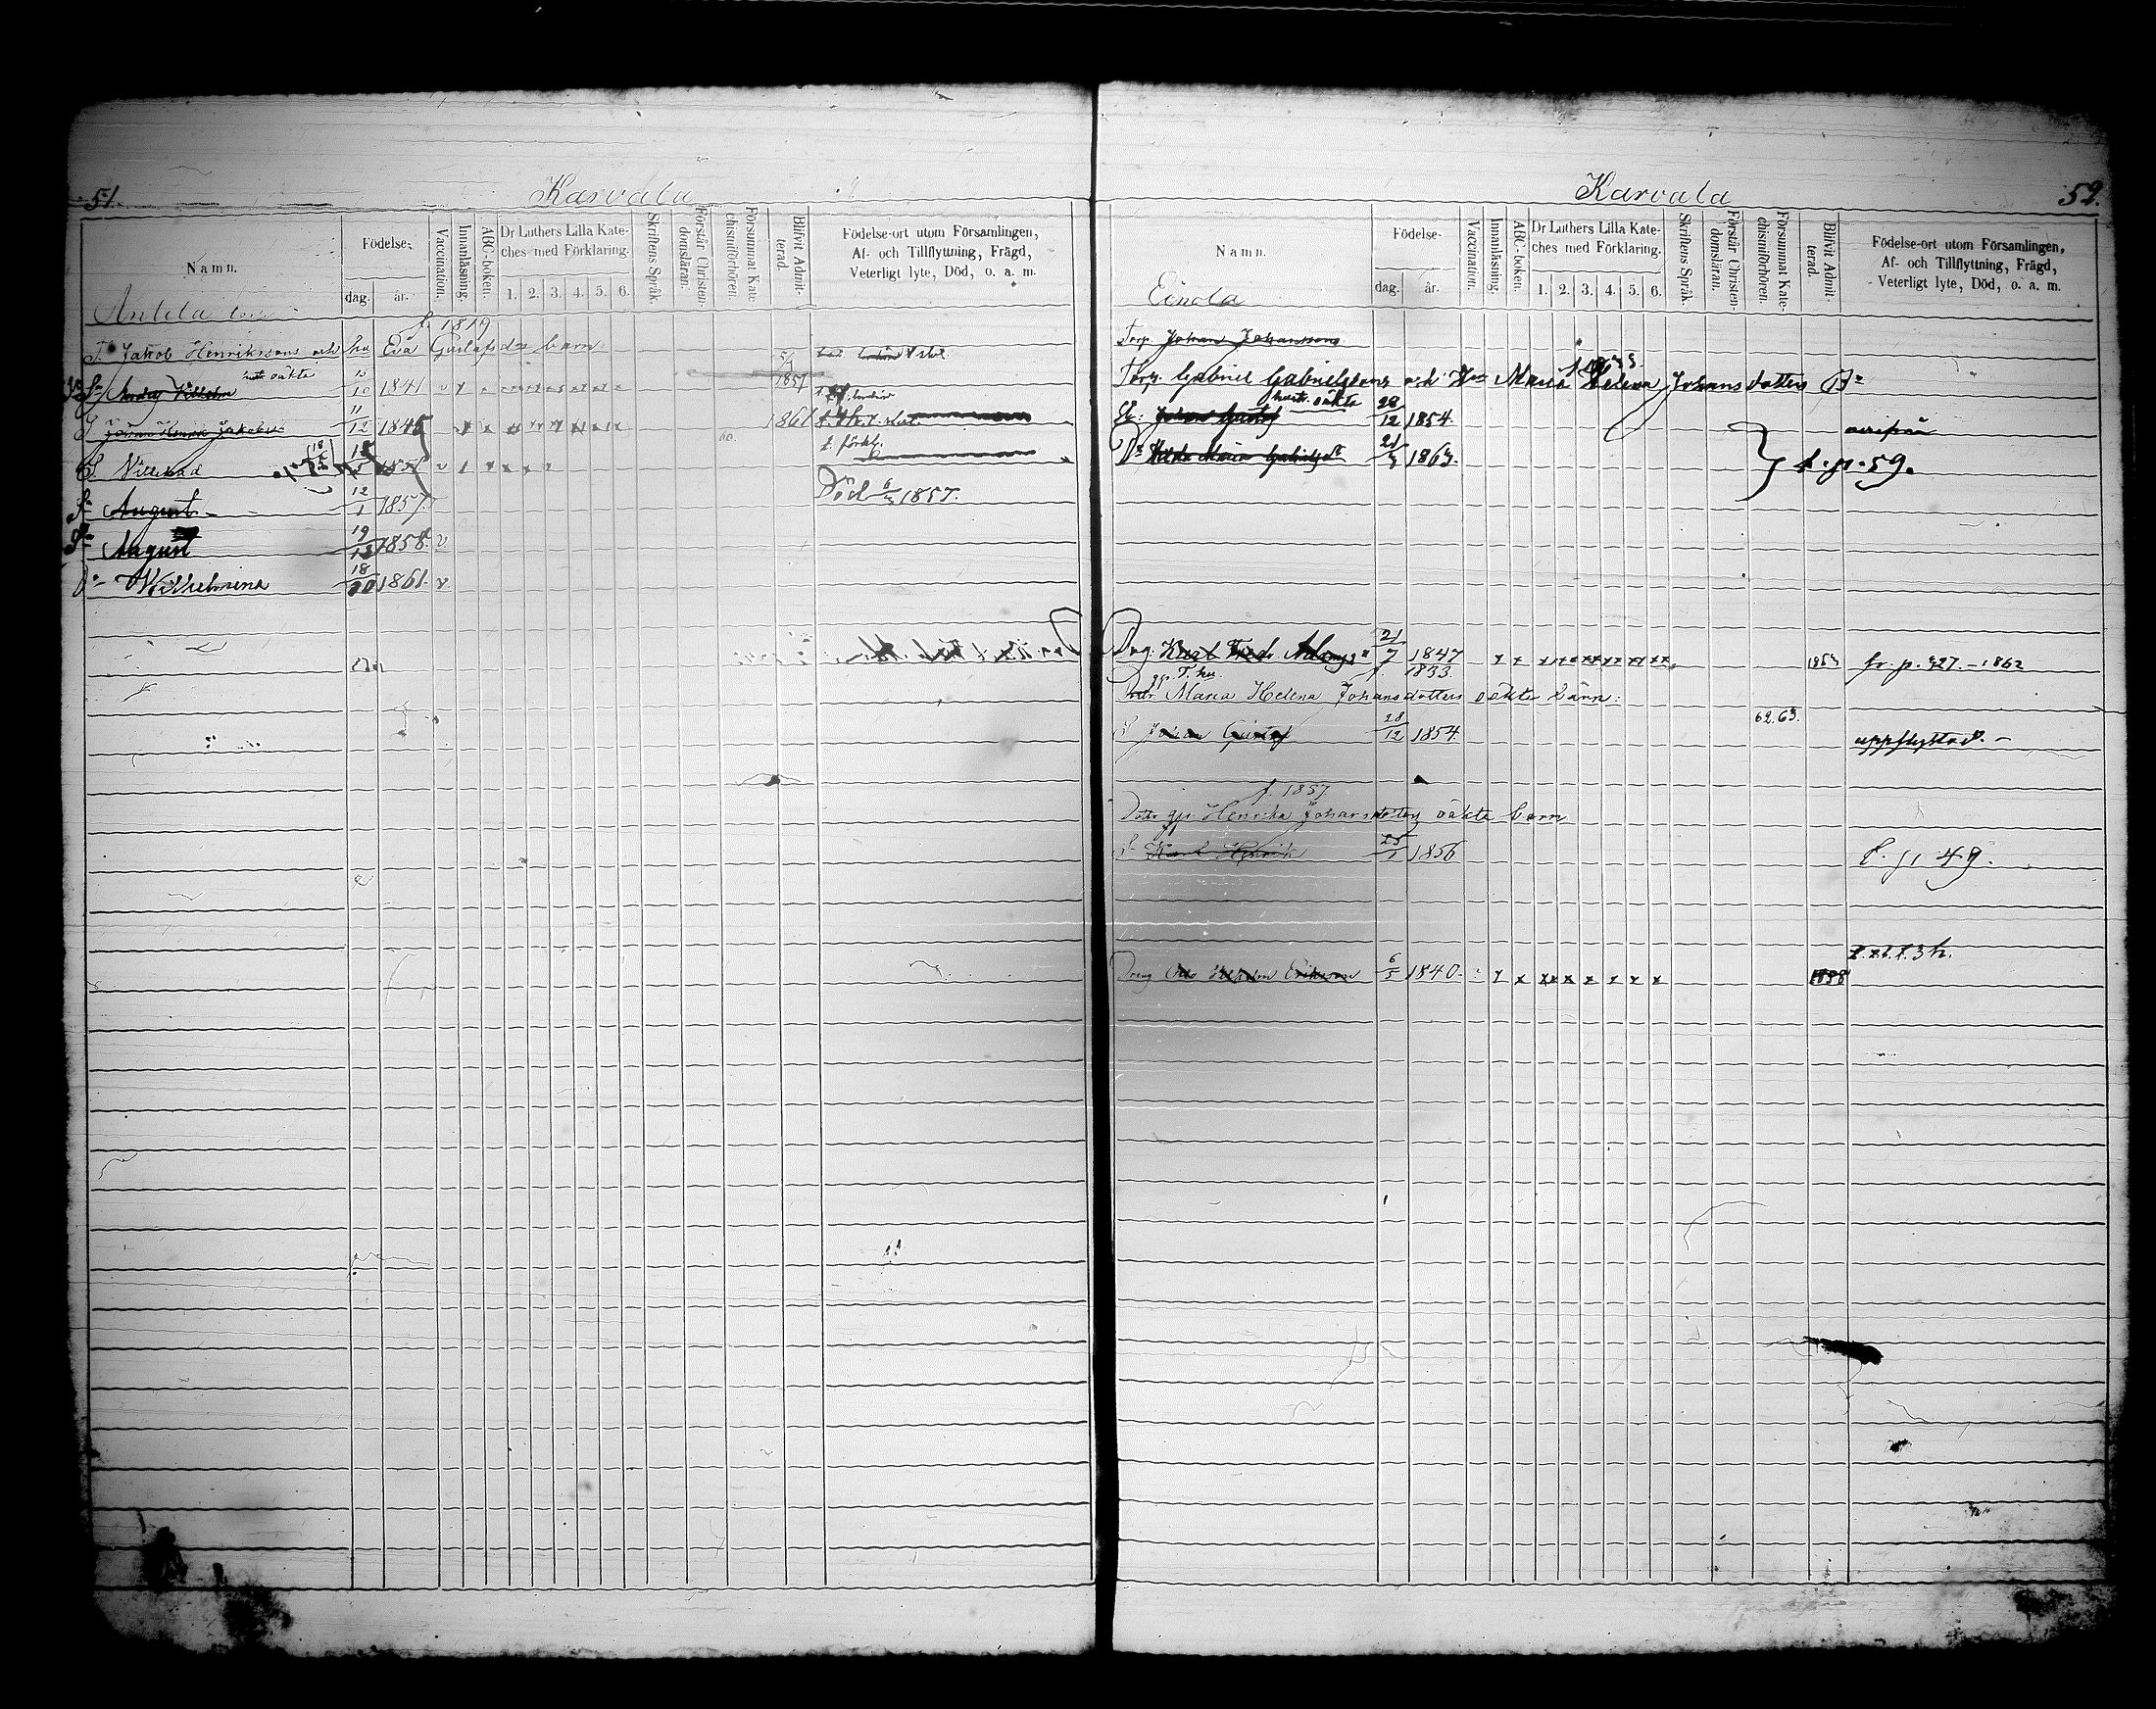 51.
Karvala
Namn.
Födelse-
dag.
år.
Vaccination.
Innanläsning.
ABC-boken.
Dr Luthers Lilla Kate-
ches med Förklaring.
1. 2. 3. 4. 5. 6.
Skriftens Språk.
Förstår Christen-
domsläran.
Försummat Kate-
chismiförhören.
Blifvit Admit-
terad.
Födelse-ort utom Församlingen,
Af- och Tillflyttning, Frägd,
Veterligt lyte, Död, o. a. m.
Anttila
f. 1819
T. Jakob Henrikssons och hu Eva Gustafsdrs barn
oäkta
Wilhelm 10 1841 v x 1857
S Johan Henrik Jakobss 11/12 1845 60. 1861
f. förkl.
S. Villehad 1851 v
S. August 12/1 1857. Död 6/3 1857.
S. August 19/12 1858. v
D. Wilhelmina 18/10 1861. v
52.
Karvala
Namn.
Födelse-
dag.
år.
Vaccination.
Innanläsning.
ABC-boken.
Dr Luthers Lilla Kate-
ches med Förklaring.
1. 2. 3. 4. 5. 6.
Skriftens Språk.
Förstår Christen-
domsläran.
Försummat Kate-
chismiförhören.
Blifvit Admit-
terad.
Födelse-ort utom Församlingen,
Af- och Tillflyttning, Frägd,
Veterligt lyte, Död, o. a. m.
Einola
Torp. Johan Johanssons
Torp. Gabriel Gabrielssons och Hus Maria Helena Johansdotters Bn
hustr. oäkta
Johan Gustaf 28/12 1854.
Dr Hilda Maria Gabrielsdr 21/3 1863. f. p. 59.
Drg. Karl Fredr. Adamss 21/7 1847 x x 1863 fr. p. 327. - 1862
gp. T. hu. f. 1833.
Dottr Maria Helena Johansdotters oäkta barn:
62.63.
S Johan Gustaf 28/12 1854. uppflyttad. -
f. 1837
Dottr gp. Henrika Johansdotters oäkta barn
S Karl Henrik 25/1 1856 f. p. 49.
Dreng Otto Wilhelm Eriksson 6/5 1840. x x x x x x x x 1858